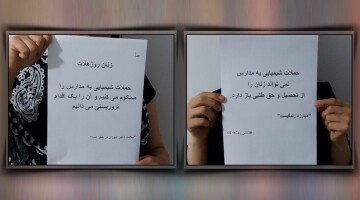 ما
زنان روژهلات
حملات شیمیایی به مدارس را
محکوم می کنیم و آن را یک اقدام
تروریستی می دانیم
حملات شیمیایی به مدارس
نمی تواند زنان را
از تحصیل و حق طلبی باز دارد.
"مبارزه زندگیست"